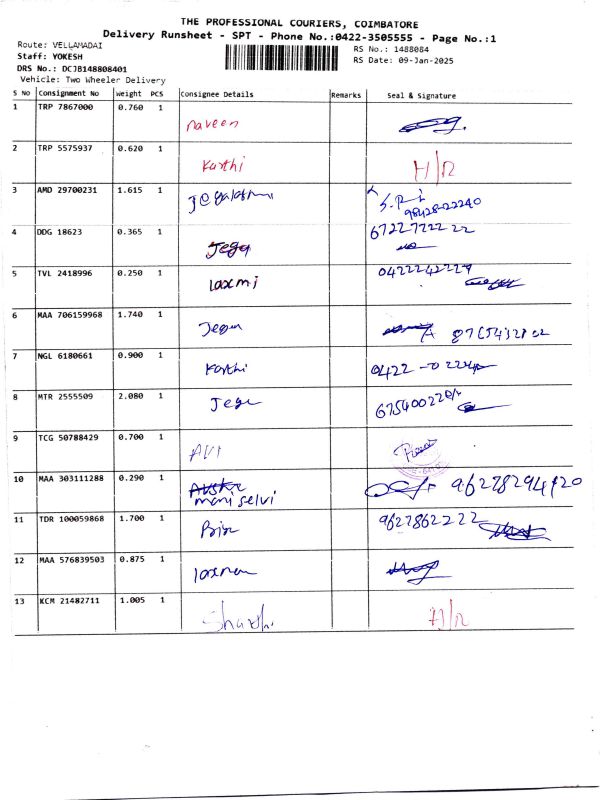 THE PROFESSIONAL COURIERS, COIMBATORE
Delivery Runsheet - SPT - Phone No.:0422-3505555 - Page No.:1
Route: VELLAMADAI
RS No.: 1488084
Staff: YOKESH
RS Date: 09-Jan-2025
DRS No.: DCJB148808401
Vehicle: Two Wheeler Delivery
S No Consignment No Weight PCS Consignee Details Remarks Seal & Signature
1 TRP 7867000 0.760 1 naveen
2 TRP 5575937 0.620 1 Karthi H/R
3 AMD 29700231 1.615 1
98428-22240
4 DDG 18623 0.365 1 Jegu 67227222 22
5 TVL 2418996 0.250 1 laxmi 0422242229
6 MAA 706159968 1.740 1 Jegu
7 NGL 6180661 0.900 1 Karthi
8 MTR 2555509 2.080 1 Jegu
9 TCG 50788429 0.700 1
10 MAA 303111288 0.290 1 mani selvi 96278294820
11 TDR 100059868 1.700 1 9627862222
12 MAA 576839503 0.875 1
13 KCM 21482711 1.005 1 Shakthi H/R